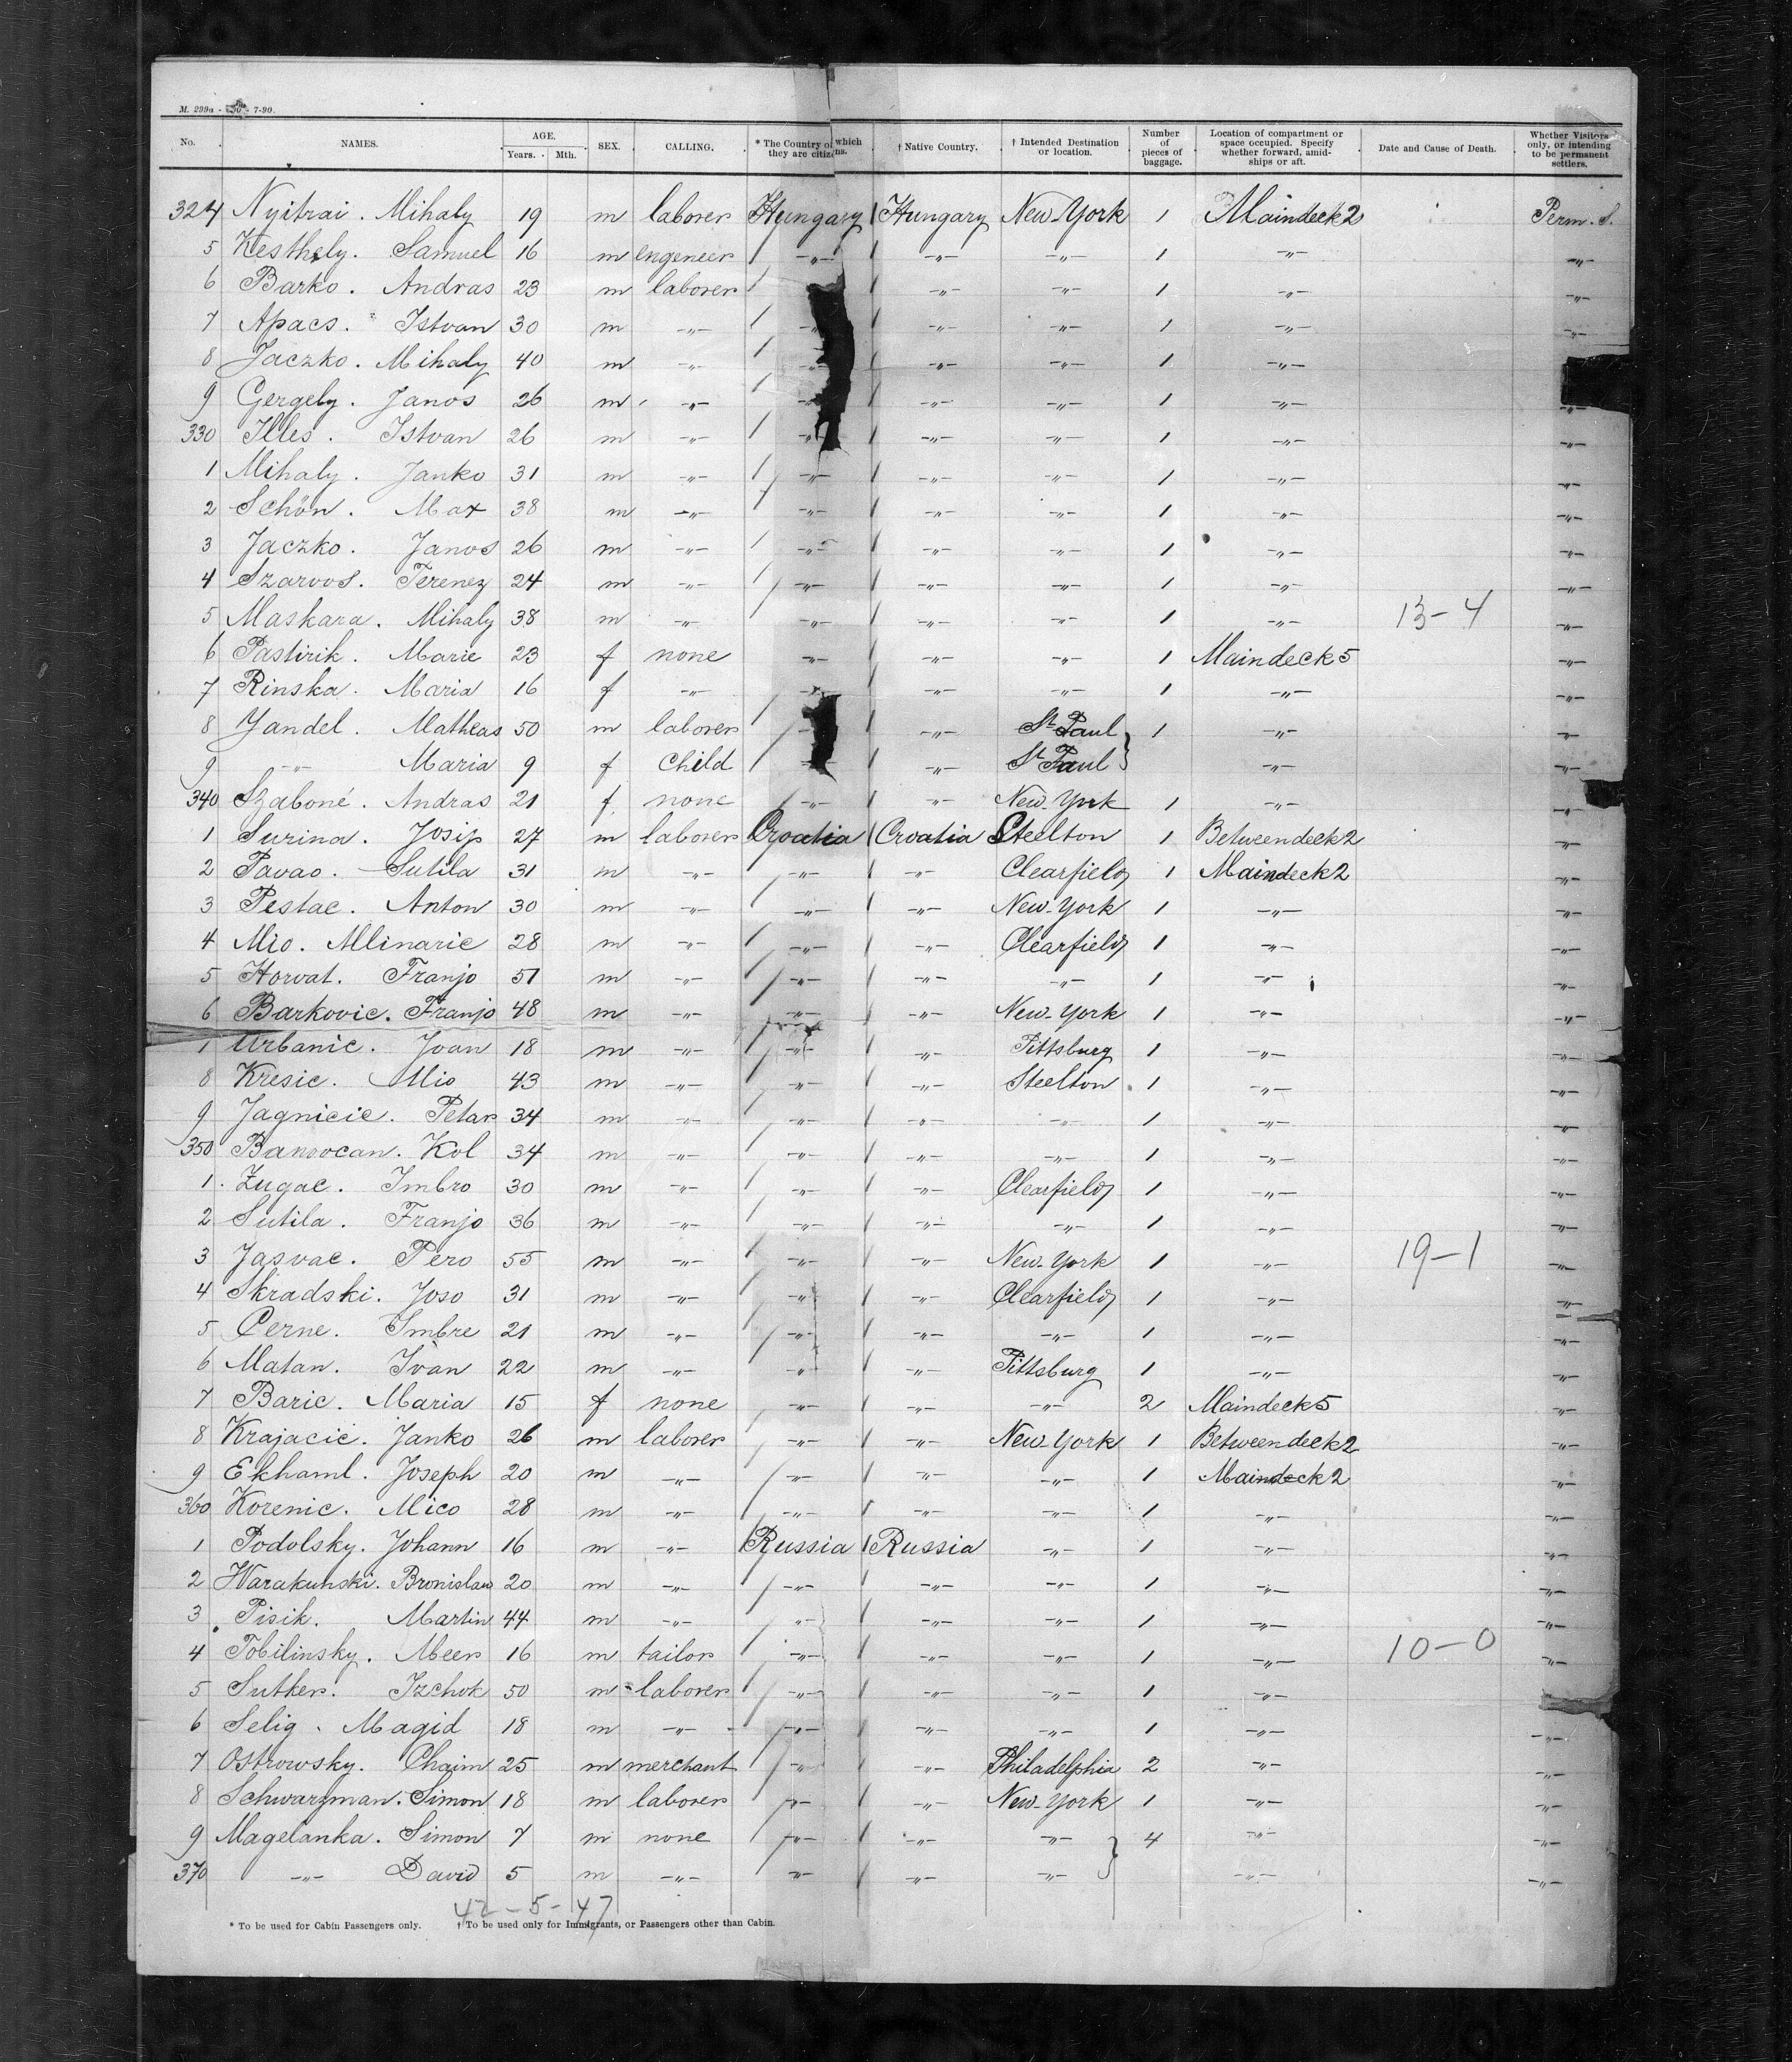 M. 299a - 50 - 7-90.
No. NAMES. AGE. Years. Mth. SEX. CALLING. * The Country of which they are citizens. † Native Country. † Intended Destination or location. Number of pieces of baggage. Location of compartment or space occupied. Specify whether forward, amidships or aft. Date and Cause of Death. Whether Visitors only, or intending to be permanent settlers.
324 Nyitrai. Mihaly 19 m laborer Hungary Hungary New-York 1 Maindeck 2 Perm. S.
5 Kesthely. Samuel 16 m engeneer -"- -"- -"- 1 -"- -"-
6 Barko. Andras 23 m laborer -"- -"- 1 -"- -"-
7 Apacs. Istvan 30 m -"- -"- -"- -"- 1 -"- -"-
8 Jaczko. Mihaly 40 m -"- -"- -"- -"- 1 -"-
9 Gergely. Janos 26 m -"- -"- -"- -"- 1 -"- -"-
330 Illes. Istvan 26 m -"- -"- -"- -"- 1 -"- -"-
1 Mihaly. Janko 31 m -"- -"- -"- -"- 1 -"- -"-
2 Schön. Max 38 m -"- -"- -"- -"- 1 -"- -"-
3 Jaczko. Janos 26 m -"- -"- -"- -"- 1 -"- -"-
4 Szarvos. Ferencz 24 m -"- -"- -"- -"- 1 -"- -"-
5 Maskara. Mihaly 38 m -"- -"- -"- -"- 1 -"- 13-4 -"-
6 Pastirik. Marie 23 f none -"- -"- -"- 1 Maindeck 5 -"-
7 Rinska. Maria 16 f -"- -"- -"- -"- 1 -"- -"-
8 Yandel. Matheas 50 m laborer -"- -"- St. Paul 1 -"- -"-
9 -"- Maria 9 f child -"- -"- St. Paul -"- -"-
340 Szaboné. Andras 21 f none -"- -"- New-York 1 -"- -"-
1 Surina. Josip 27 m laborer Croatia Croatia Steelton 1 Betweendeck 2 -"-
2 Pavao. Sutila 31 m -"- -"- -"- Clearfield 1 Maindeck 2 -"-
3 Pestac. Anton 30 m -"- -"- -"- New-York 1 -"- -"-
4 Mio. Mlinaric 28 m -"- -"- -"- Clearfield 1 -"- -"-
5 Horvat. Franjo 51 m -"- -"- -"- -"- 1 -"- -"-
6 Barkovic. Franjo 48 m -"- -"- -"- New-York 1 -"- -"-
7 Urbanic. Joan 18 m -"- -"- -"- Pittsburg 1 -"- -"-
8 Kresic. Mio 43 m -"- -"- -"- Steelton 1 -"- -"-
9 Jagnicic. Petar 34 m -"- -"- -"- -"- 1 -"- -"-
350 Banvocan. Kol 34 m -"- -"- -"- -"- 1 -"- -"-
1 Zugac. Imbro 30 m -"- -"- -"- Clearfield 1 -"- -"-
2 Sutila. Franjo 36 m -"- -"- -"- -"- 1 -"- -"-
3 Jasvac. Pero 55 m -"- -"- -"- New-York 1 -"- 19-1 -"-
4 Skradski. Joso 31 m -"- -"- -"- Clearfield 1 -"- -"-
5 Cerne. Imbre 21 m -"- -"- -"- -"- 1 -"- -"-
6 Matan. Ivan 22 m -"- -"- -"- Pittsburg 1 -"- -"-
7 Baric. Maria 15 f none -"- -"- -"- 2 Maindeck 5 -"-
8 Krajacic. Janko 26 m laborer -"- -"- New-York 1 Betweendeck 2 -"-
9 Ekhaml. Joseph 20 m -"- -"- -"- -"- 1 Maindeck 2 -"-
360 Korenic. Mico 28 m -"- -"- -"- -"- 1 -"- -"-
1 Podolsky. Johann 16 m -"- Russia Russia -"- 1 -"- -"-
2 Warakunski. Bronislaw 20 m -"- -"- -"- -"- 1 -"- -"-
3 Pisik. Martin 44 m -"- -"- -"- -"- 1 -"- -"-
4 Tobilinsky. Meer 16 m tailor -"- -"- -"- 1 -"- 10-0 -"-
5 Sutker. Izchok 50 m laborer -"- -"- -"- 1 -"- -"-
6 Selig. Magid 18 m -"- -"- -"- -"- 1 -"- -"-
7 Ostrowsky. Chaim 25 m merchant -"- -"- Philadelphia 2 -"- -"-
8 Schwarzman. Simon 18 m laborer -"- -"- New-York 1 -"- -"-
9 Magelanka. Simon 7 m none -"- -"- -"- 4 -"- -"-
370 -"- David 5 m -"- -"- -"- -"- -"- -"-
42-5-47
* To be used for Cabin Passengers only. † To be used only for Immigrants, or Passengers other than Cabin.